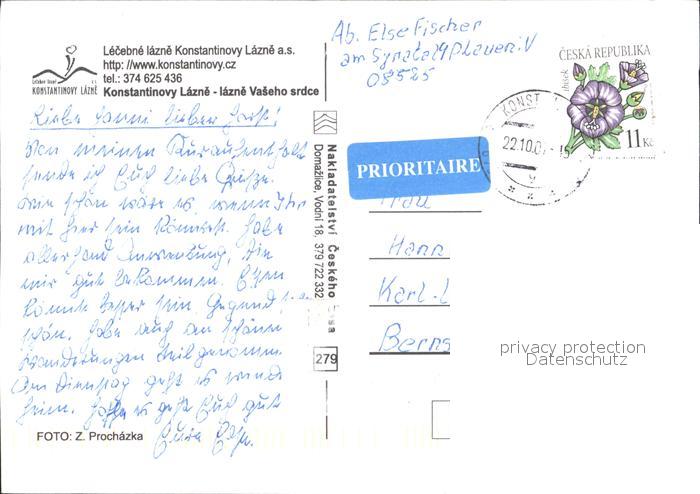 Léčebné lázně Konstantinovy Lázně a.s.
http://www.konstantinovy.cz
tel.: 374 625 436
Konstantinovy Lázně - lázně Vašeho srdce
KONSTANTINOVY LÁZNĚ
Ab. Else Fischer
am Syratal Plauen i. V
08525
ČESKÁ REPUBLIKA
ibišek
11 Kč
KONST
22.10.0
PRIORITAIRE
Liebe Hanni lieber Horst!
Von meinem Kuraufenthalt
sende ich Euch liebe Grüße.
Wie schön wäre es, wenn Ihr
mit hier sein könntet. Habe
allerhand Anwendung, die
mir gut bekommen. Essen
könnte besser sein. Gegend
schön. Habe auch an schönen
Wanderungen teilgenommen.
Am Dienstag geht es wieder
heim. Hoffe es geht Euch gut
Eure Else.
FOTO: Z. Procházka
Nakladatelství Českého
Domažlice, Vodní 18, 379 722 332
279
Frau
Hann
Karl-L
Berns
privacy protection
Datenschutz